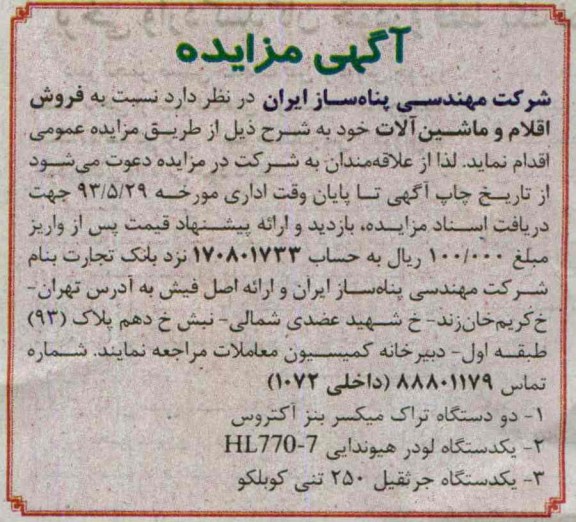 آگهی مزایده
شرکت مهندسی پناه‌ساز ایران در نظر دارد نسبت به فروش
اقلام و ماشین‌آلات خود به شرح ذیل از طریق مزایده عمومی
اقدام نماید. لذا از علاقه‌مندان به شرکت در مزایده دعوت می‌شود
از تاریخ چاپ آگهی تا پایان وقت اداری مورخه ۹۳/۵/۲۹ جهت
دریافت اسناد مزایده، بازدید و ارائه پیشنهاد قیمت پس از واریز
مبلغ ۱۰۰/۰۰۰ ریال به حساب ۱۷۰۸۰۱۷۳۳ نزد بانک تجارت بنام
شرکت مهندسی پناه‌ساز ایران و ارائه اصل فیش به آدرس تهران-
خ کریم‌خان‌زند- خ شهید عضدی شمالی- نبش خ دهم پلاک (۹۳)
طبقه اول- دبیرخانه کمیسیون معاملات مراجعه نمایند. شماره
تماس ۸۸۸۰۱۱۷۹ (داخلی ۱۰۷۲)
۱- دو دستگاه تراک میکسر بنز آکتروس
۲- یکدستگاه لودر هیوندایی HL770-7
۳- یکدستگاه جرثقیل ۲۵۰ تنی کوبلکو